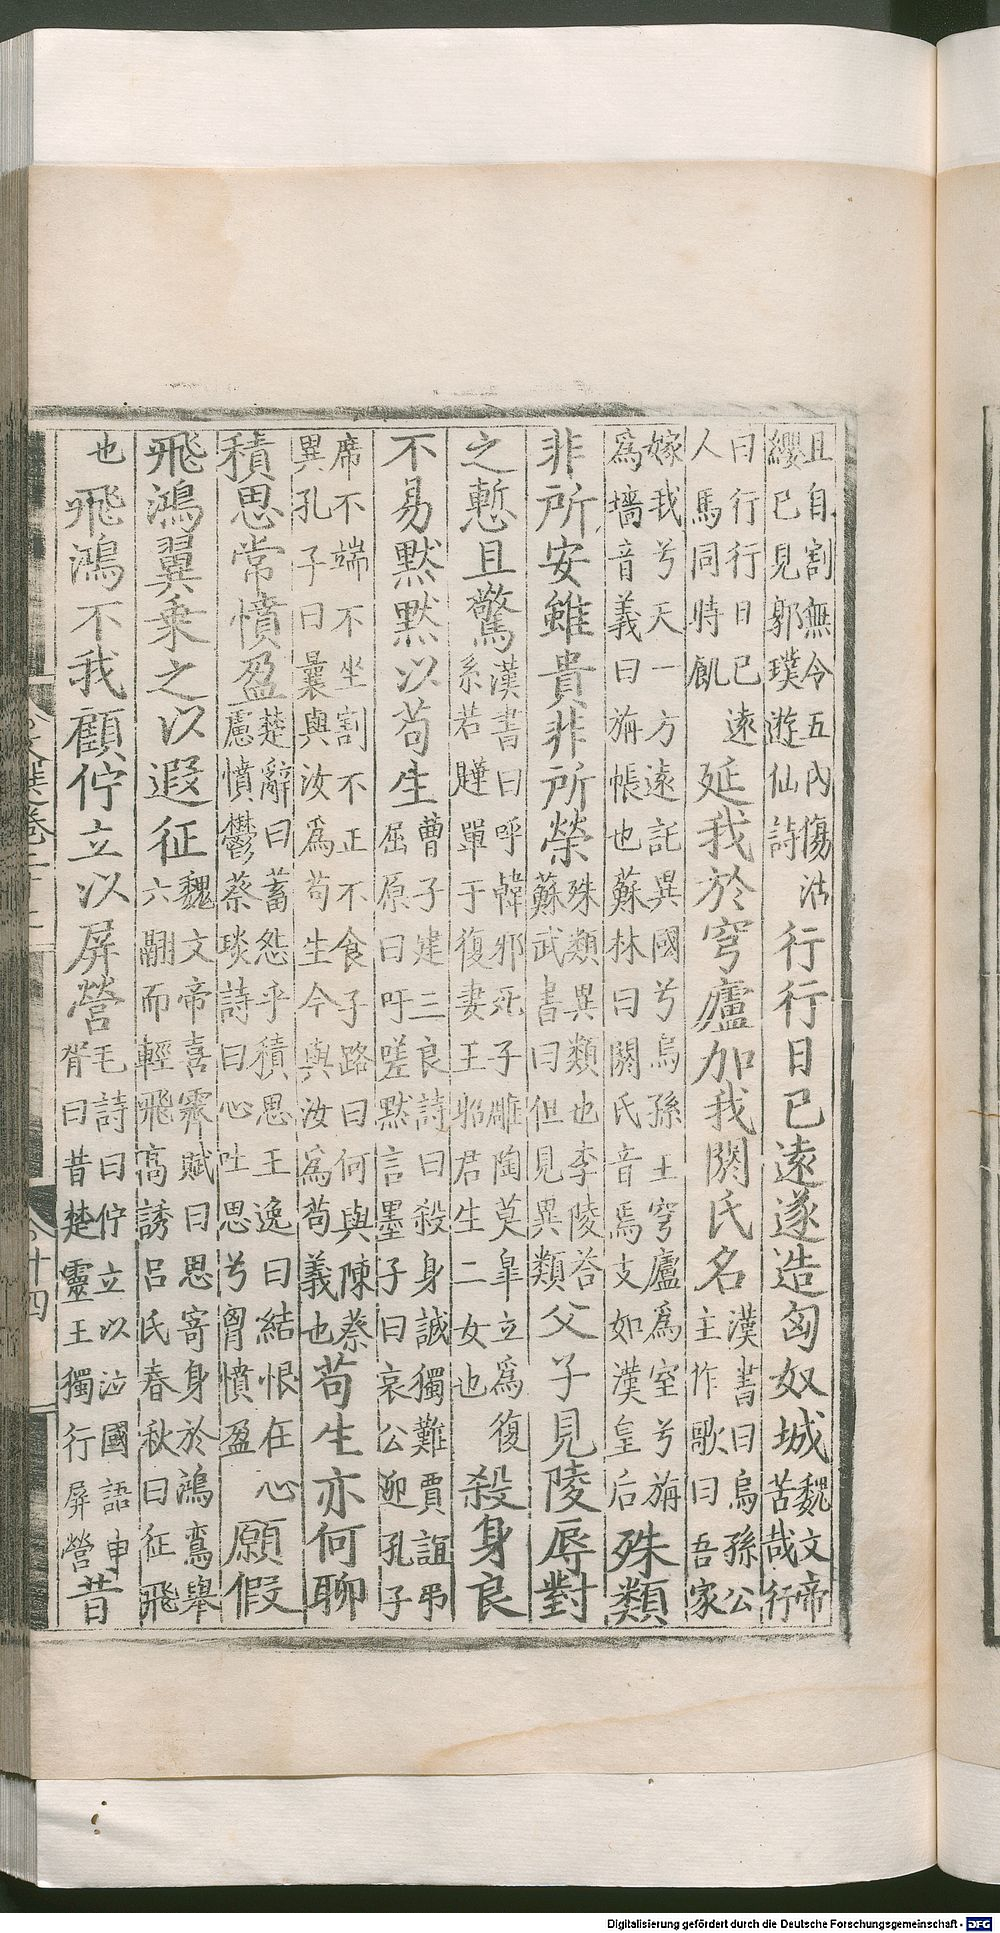 且自割無令五內傷沾
纓巳見郭璞遊仙詩
行行日巳遠遂造匈奴城
魏文帝
苦哉行
曰行行日巳遠
人馬同時飢
延我於穹廬加我閼氏名
漢書曰烏孫公
主作歌曰吾家
嫁我兮天一方遠託異國兮烏孫王穹廬爲室兮旃
爲墻音義曰旃帳也蘇林曰閼氏音焉支如漢皇后
殊類
非所安雖貴非所榮
殊類異類也李陵荅
蘇武書曰但見異類
父子見陵辱對
之慙且驚
漢書曰呼韓邪死子雕陶莫皐立爲復
系若鞮單于復妻王昭君生二女也
殺身良
不易默默以苟生
曹子建三良詩曰殺身誠獨難賈誼弔
屈原曰吁嗟默言墨子曰哀公迎孔子
席不端不坐割不正不食子路曰何與陳蔡
異孔子曰曩與汝爲苟生今與汝爲苟義也
苟生亦何聊
積思常憤盈
楚辭曰蓄怨乎積思王逸曰結恨在心
慮憤鬱蔡琰詩曰心吐思兮胷憤盈
願假
飛鴻翼乗之以遐征
魏文帝喜霽賦曰思寄身於鴻鸞舉
六翮而輕飛高誘呂氏春秋曰征飛
也
飛鴻不我顧佇立以屏營
毛詩曰佇立以泣國語申
胥曰昔楚靈王獨行屏營
昔
十四
Digitalisierung gefördert durch die Deutsche Forschungsgemeinschaft - DFG